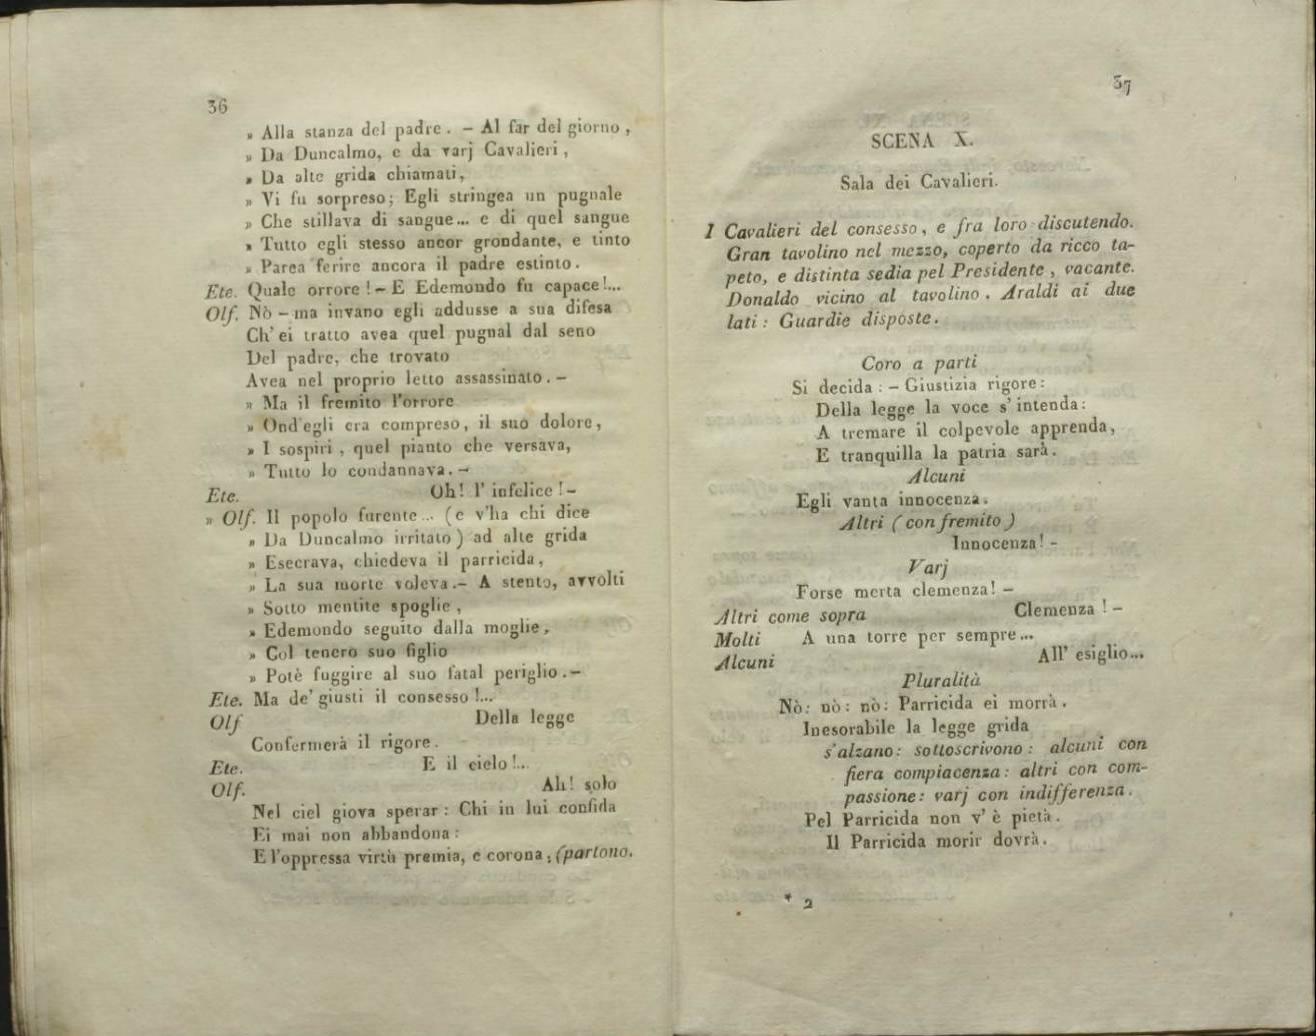 36
» Alla stanza del padre. – Al far del giorno,
» Da Duncalmo, e da varj Cavalieri,
» Da alte grida chiamati,
» Vi fu sorpreso; Egli stringea un pugnale
» Che stillava di sangue... e di quel sangue
» Tutto egli stesso ancor grondante, e tinto
» Parea ferire ancora il padre estinto.
Ete. Quale orrore! – E Edemondo fu capace!...
Olf. Nò – ma invano egli addusse a sua difesa
Ch' ei tratto avea quel pugnal dal seno
Del padre, che trovato
Avea nel proprio letto assassinato. –
» Ma il fremito l'orrore
» Ond'egli era compreso, il suo dolore,
» I sospiri, quel pianto che versava,
» Tutto lo condannava. –
Ete. Oh! l' infelice! –
» Olf. Il popolo furente... (e v'ha chi dice
» Da Duncalmo irritato) ad alte grida
» Esecrava, chiedeva il parricida,
» La sua morte voleva. – A stento, avvolti
» Sotto mentite spoglie,
» Edemondo seguito dalla moglie,
» Col tenero suo figlio
» Potè fuggire al suo fatal periglio. –
Ete. Ma de' giusti il consesso!...
Olf Della legge
Confermerà il rigore.
Ete. E il cielo!...
Olf. Ah! solo
Nel ciel giova sperar: Chi in lui confida
Ei mai non abbandona:
E l'oppressa virtù premia, e corona; (partono.
37
SCENA X.
Sala dei Cavalieri.
I Cavalieri del consesso, e fra loro discutendo.
Gran tavolino nel mezzo, coperto da ricco ta-
peto, e distinta sedia pel Presidente, vacante.
Donaldo vicino al tavolino. Araldi ai due
lati: Guardie disposte.
Coro a parti
Si decida: – Giustizia rigore:
Della legge la voce s' intenda:
A tremare il colpevole apprenda,
E tranquilla la patria sarà.
Alcuni
Egli vanta innocenza.
Altri (con fremito)
Innocenza! –
Varj
Forse merta clemenza! –
Altri come sopra Clemenza! –
Molti A una torre per sempre...
Alcuni All' esiglio...
Pluralità
Nò: nò: nò: Parricida ei morrà.
Inesorabile la legge grida
s'alzano: sottoscrivono: alcuni con
fiera compiacenza: altri con com-
passione: varj con indifferenza.
Pel Parricida non v' è pietà.
Il Parricida morir dovrà.
* 2